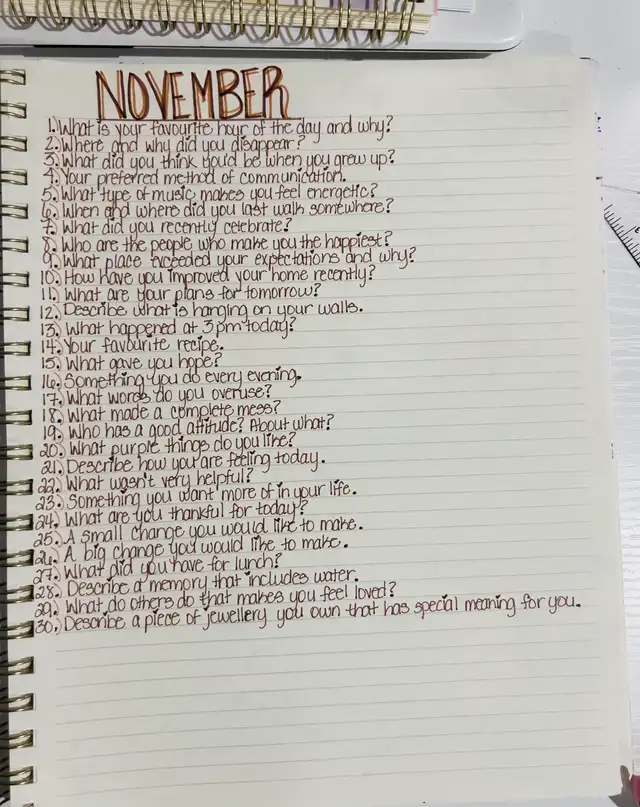 NOVEMBER
1. What is your favourite hour of the day and why?
2. Where and why did you disappear?
3. What did you think you'd be when you grew up?
4. Your preferred method of communication.
5. What type of music makes you feel energetic?
6. When and where did you last walk somewhere?
7. What did you recently celebrate?
8. Who are the people who make you the happiest?
9. What place exceeded your expectations and why?
10. How have you improved your home recently?
11. What are your plans for tomorrow?
12. Describe what is hanging on your walls.
13. What happened at 3pm today?
14. Your favourite recipe.
15. What gave you hope?
16. Something you do every evening.
17. What words do you overuse?
18. What made a complete mess?
19. Who has a good attitude? About what?
20. What purple things do you like?
21. Describe how you are feeling today.
22. What wasn't very helpful?
23. Something you want more of in your life.
24. What are you thankful for today?
25. A small change you would like to make.
26. A big change you would like to make.
27. What did you have for lunch?
28. Describe a memory that includes water.
29. What do others do that makes you feel loved?
30. Describe a piece of jewellery you own that has special meaning for you.